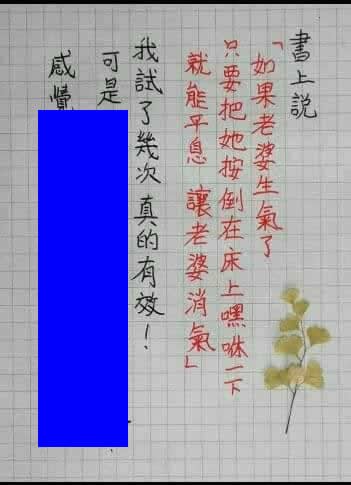 書上說
「如果老婆生氣了
只要把她按倒在床上嘿咻一下
就能平息 讓老婆消氣」
我試了幾次 真的有效！
可是
感覺